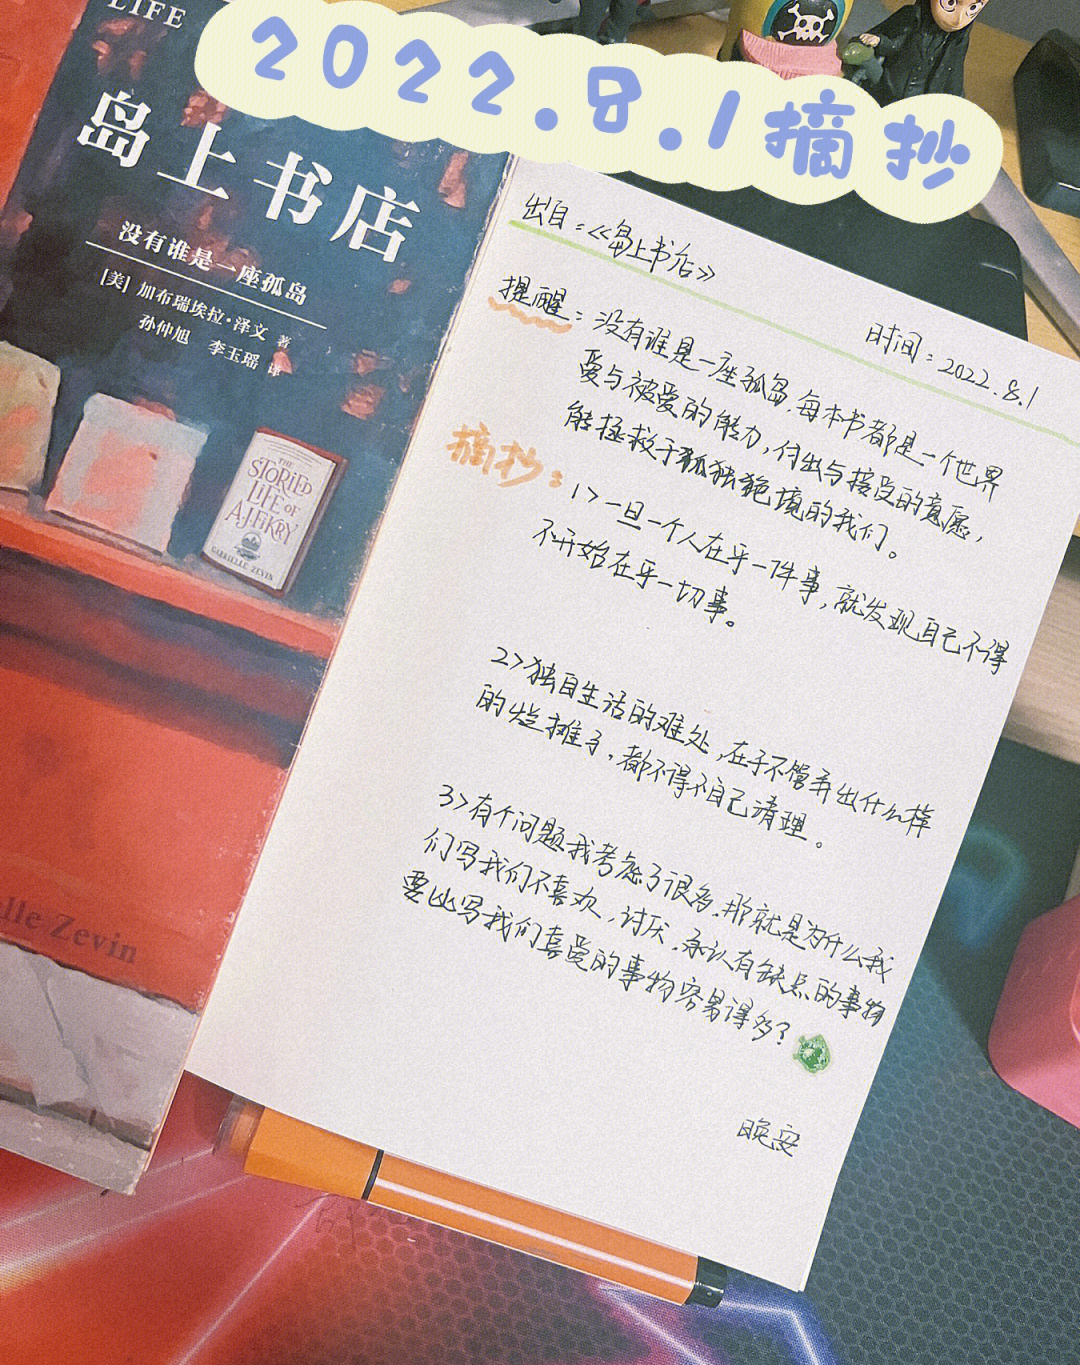 LIFE
2022.8.1摘抄
岛上书店
没有谁是一座孤岛
[美] 加布瑞埃拉·泽文 著
孙仲旭 李玉瑶 译
THE
STORIED
LIFE OF
A.J.FIKRY
GABRIELLE ZEVIN
lle Zevin
出自:《岛上书店》
时间:2022.8.1
提醒:没有谁是一座孤岛,每本书都是一个世界
爱与被爱的能力,付出与接受的意愿,
能拯救于孤独绝境的我们。
摘抄:1>一旦一个人在乎一件事,就发现自己不得
不开始在乎一切事。
2>独自生活的难处,在于不管弄出什么样
的烂摊子,都不得不自己清理。
3>有个问题我考虑了很多,那就是为什么我
们写我们不喜欢,讨厌,承认有缺点的事物
要比写我们喜爱的事物容易得多?
晚安